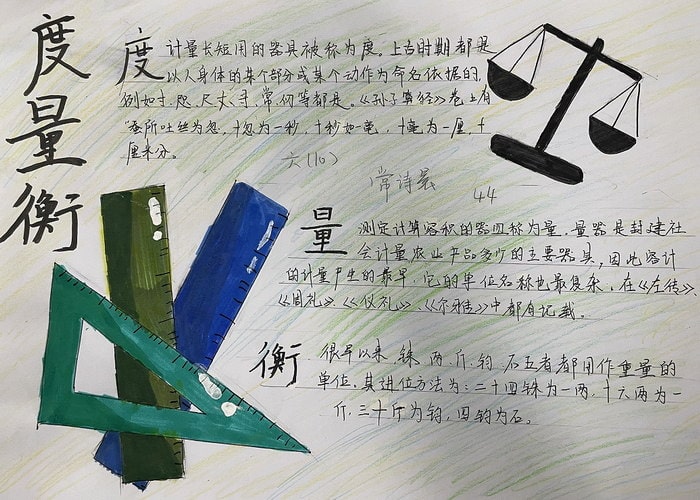 度量衡
度 计量长短用的器具被称为度。上古时期都是
以人身体的某个部分或某个动作为命名依据的,
例如寸、咫、尺、丈、寻、常、仞等都是。《孙子算经》卷上有
“蚕所吐丝为忽,十忽为一秒,十秒如一毫,十毫为一厘,十
厘米分。
六(10)
常诗晨
44
量 测定计算容积的器皿称为量。量器是封建社
会计量农业产品多少的主要器具,因此容计
的计量产生的最早,它的单位名称也最复杂,在《左传》、
《周礼》、《仪礼》、《尔雅》中都有记载。
衡 很早以来,铢、两、斤、钧、石五者都用作重量的
单位,其进位方法为:二十四铢为一两,十六两为一
斤,三十斤为钧,四钧为石。